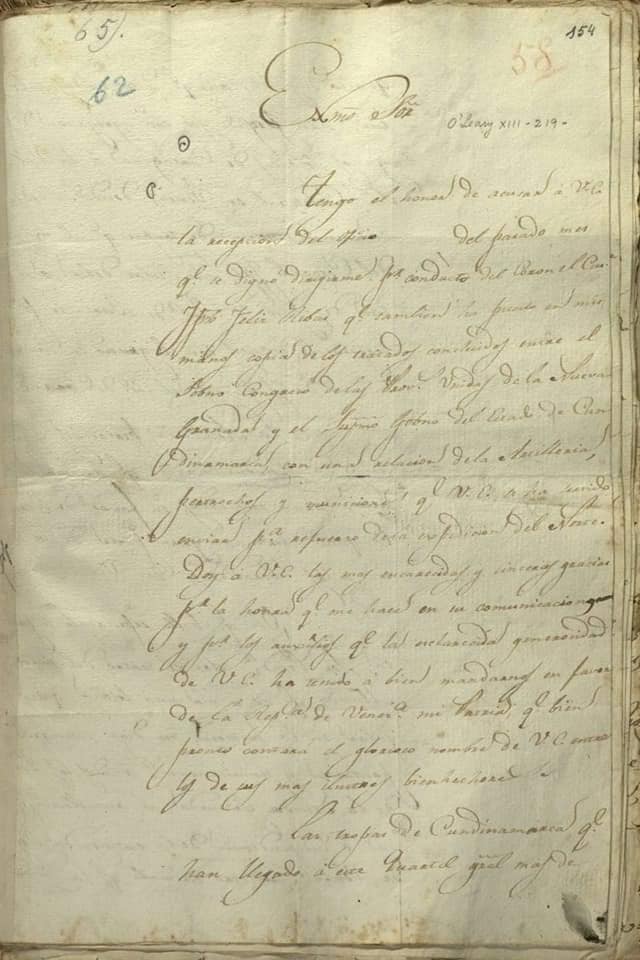 65).
154
62
58
Exmō Sōr
O'Leary XIII - 219 -
Tengo el honor de acusar à V.E.
la recepcion del oficio del pasado mes
qe. se dignó dirigirme pr. conducto del Coronel Ciu.
Jph Felix Ribas qe. tambien ha puesto en mis
manos copia de los tratados concluidos entre el
Sobno Congreso de las Prov.s Unidas de la Nueva
Granada y el Supmo Gobno del Estado de Cun
dinamarca, con una relacion de la Artilleria,
pertrechos y municiones qe. V.E. se ha servido
enviar pa. refuerzo de la expedicion del Norte.
Doy à V.E. las mas encarecidas y sinceras gracias
pr. la honra qe. me hace en su comunicacion
y pr. los auxilios qe. la esclarecida generosidad
de V.E. ha tenido à bien mandarnos en favor
de la Repca. de Veneza. mi Patria, qe. bien
pronto contará el glorioso nombre de V.E. entre
los de sus mas ilustres bienhechores.
Las tropas de Cundinamarca qe.
han llegado à este Quartel gral mas de